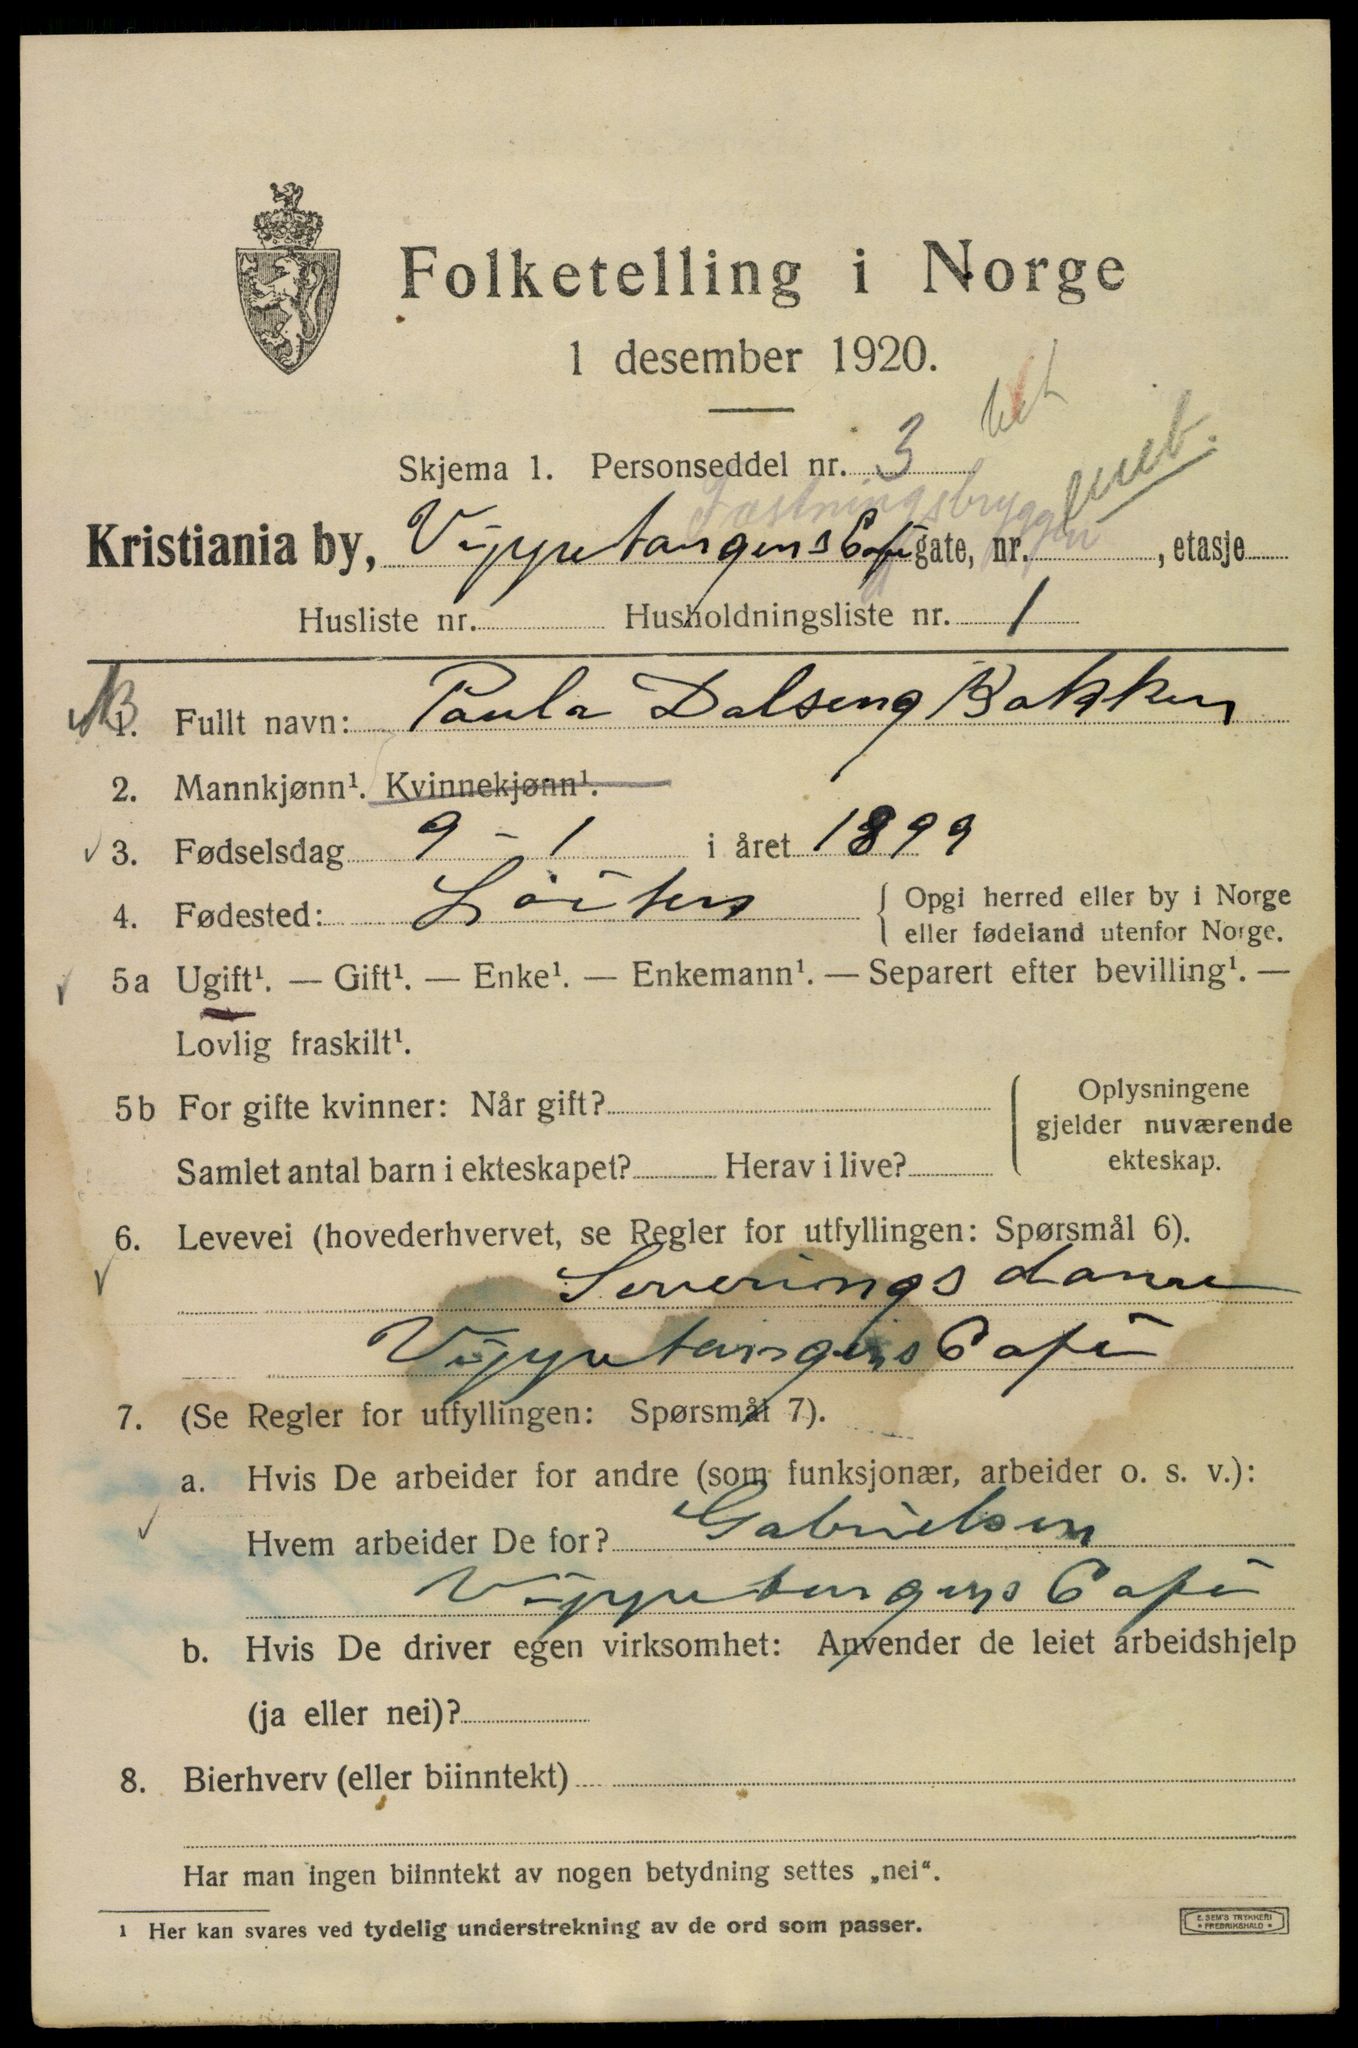 Folketelling i Norge
1 desember 1920.
Skjema 1. Personseddel nr. 3
Fæstningsbryggen
Kristiania by, Vippetangens Café gate, nr. , etasje
Husliste nr. Husholdningsliste nr. 1
1. Fullt navn: Paula Dalseng Bakken
2. Mannkjønn¹. Kvinnekjønn¹.
3. Fødselsdag 9 - 1 i året 1899
4. Fødested: Löiten { Opgi herred eller by i Norge
eller fødeland utenfor Norge.
5a Ugift¹. — Gift¹. — Enke¹. — Enkemann¹. — Separert efter bevilling¹. —
Lovlig fraskilt¹.
5b For gifte kvinner: Når gift? Oplysningene
gjelder nuværende
Samlet antal barn i ekteskapet? Herav i live? ekteskap.
6. Levevei (hovederhvervet, se Regler for utfyllingen: Spørsmål 6).
Serverings dame
Vippetangens Café
7. (Se Regler for utfyllingen: Spørsmål 7).
a. Hvis De arbeider for andre (som funksjonær, arbeider o. s. v.):
Hvem arbeider De for? Gabrielsen
Vippetangens Café
b. Hvis De driver egen virksomhet: Anvender de leiet arbeidshjelp
(ja eller nei)?
8. Bierhverv (eller biinntekt)
Har man ingen biinntekt av nogen betydning settes „nei“.
1 Her kan svares ved tydelig understrekning av de ord som passer.
E. SEM'S TRYKKERI
* FREDRIKSHALD *